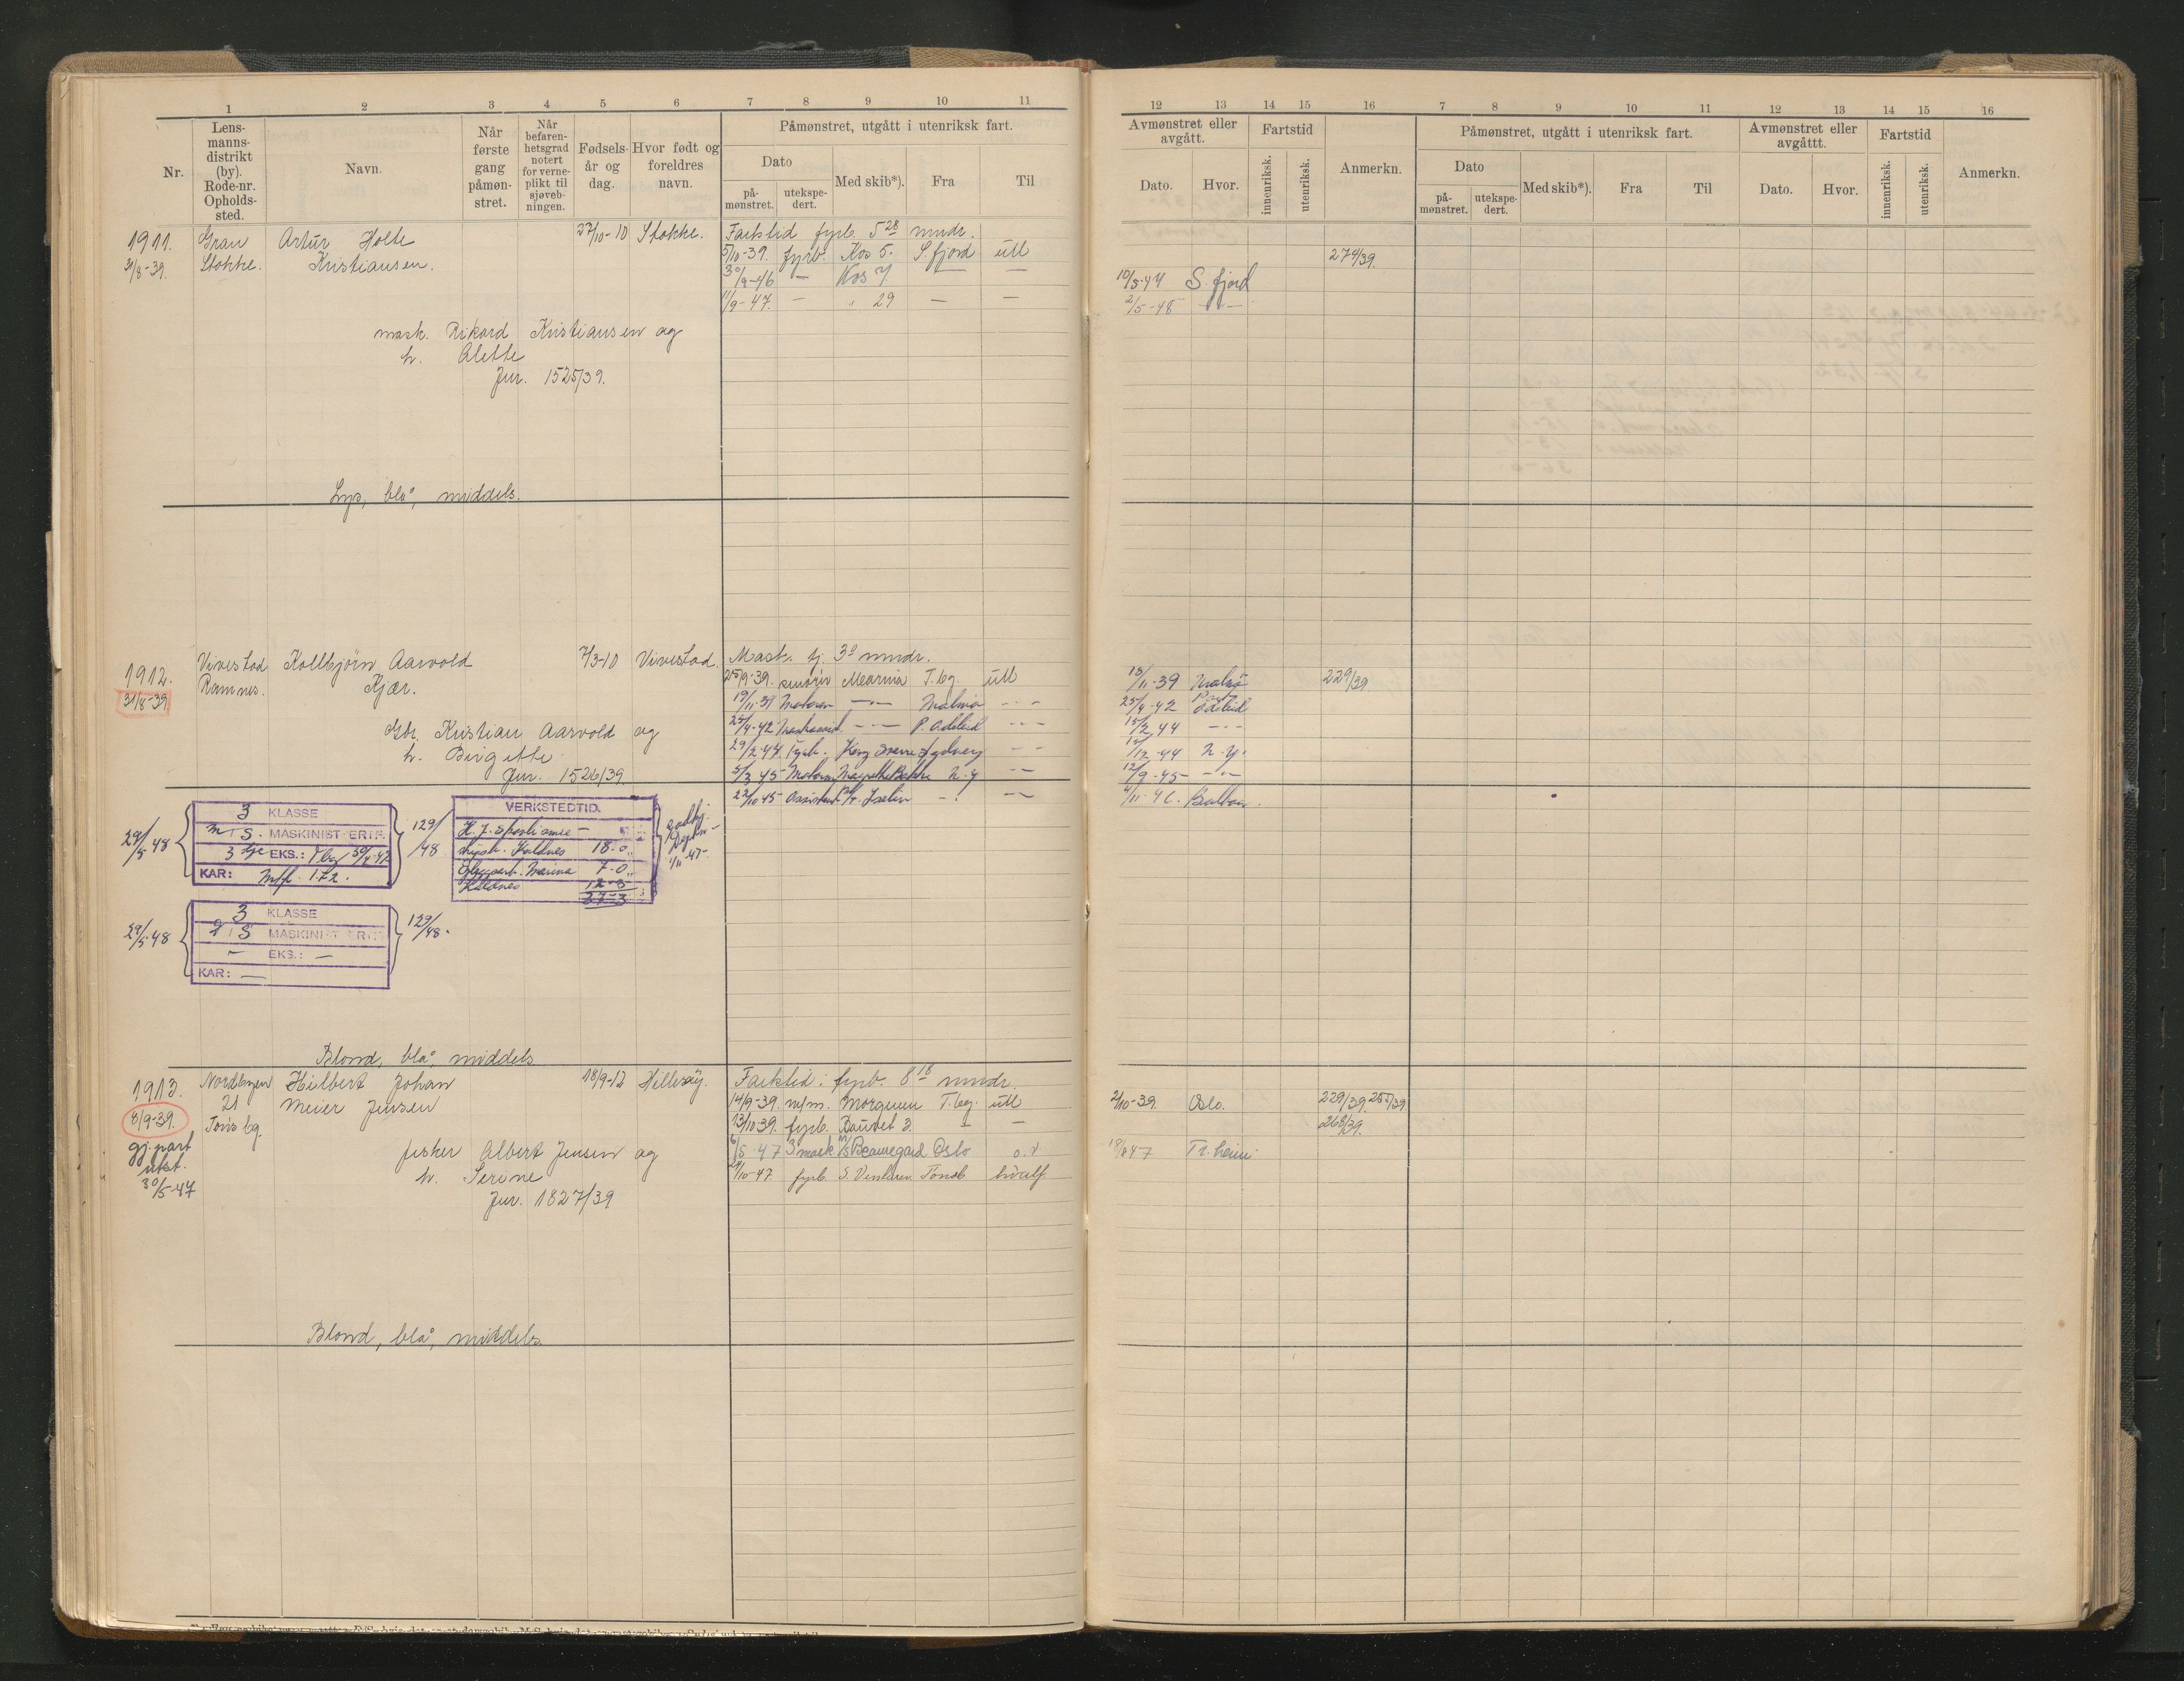 1 2 3 4 5 6 7 8 9 10 11
Nr.
Lens-
manns-
distrikt
(by).
Rode-nr.
Opholds-
sted.
Navn.
Når
første
gang
påmøn-
stret.
Når
befaren-
hetsgrad
notert
for verne-
plikt til
sjøveb-
ningen.
Fødsels-
år og
dag.
Hvor født og
foreldres
navn.
Påmønstret, utgått i utenriksk fart.
Dato
på-
mønstret.
utekspe-
dert.
Med skib*).
Fra
Til
1911. Gran Artur Holte 27/10-10 Stokke. Farktid fyrb. 5 28 mndr.
31/8-39. Stokke. Kristiansen. 5/10-39. fyrb. Kos 5. S.fjord utl
30/9-46 — Kos 7. — —
11/9-47. — " 29 — —
mask. Rikard Kristiansen og
h. Alette
Jnr. 1525/39.
Lys, blå, middels.
1912. Vivestad Kollbjørn Aarvold 7/3-10 Vivestad. Mask. tj. 30 mndr.
31/8-39 Ramnes. Kjær. 25/9-39. smører Mearnia T.bg. utl
19/11-39 Motorm —"— Malmø -"-
25/4-42 —"— P. Adelaid -"-
Gbr. Kristian Aarvold og 29/2-44 Fyrb. Kong Sverre Sydney -"-
h. Birgette 5/3 45 Motorm Bakke N.Y -"-
Jnr. 1526/39 22/10 45 Assistent Iselin -"- -"-
29/5-48 3 KLASSE
M/S. MASKINIST ERTF.
3dje EKS.: Tbg 30/4-42
KAR: M/f. 172.
129/48
VERKSTEDTID.
Kaldnes 18-0
Marina 7-0
Kaldnes 12-3
37-3
godkj.
1/11-47-
29/5-48 3 KLASSE
D/S MASKINIST ERTF
— EKS.: —
KAR: —
129/48.
Blond, blå, middels
1913. Nordbyen Hilbert Johan 18/9-12 Hillesøy. Farktid: fyrb. 8 18 mndr.
8/9-39. 21 Meier Jensen 14/9-39. m/m. Morgunen T.bg. utl
Tønsbg. 13/10-39. fyrb. Raudet 2. — —
gj.part
utst.
30/5-47
fisker Albert Jensen og 6/5-47 3 mask M/S Beauregard Oslo o.d
h. Serine 24/10-47. fyrb. S. Venturer Tønsb. hvalf
Jnr. 1827/39
Blond, blå, middels.
12 13 14 15 16 7 8 9 10 11 12 13 14 15 16
Avmønstret eller
avgått.
Dato.
Hvor.
Fartstid
innenriksk.
utenriksk.
Anmerkn.
Påmønstret, utgått i utenriksk fart.
Dato
på-
mønstret.
utekspe-
dert.
Med skib*).
Fra
Til
Avmønstret eller
avgåttt.
Dato.
Hvor.
Fartstid
innenriksk.
utenriksk.
Anmerkn.
274/39.
10/5-47 S. fjord
2/5-48 -"-
15/11-39 Malmø 229/39
25/4-42 Port Adelaid
15/2 44 -"-
15/12-44 N.Y.
12/9-45- -"-
4/11-46. Balboa.
2/10-39. Oslo. 229/39. 255/39
268/39.
18/8 47 Tr.heim